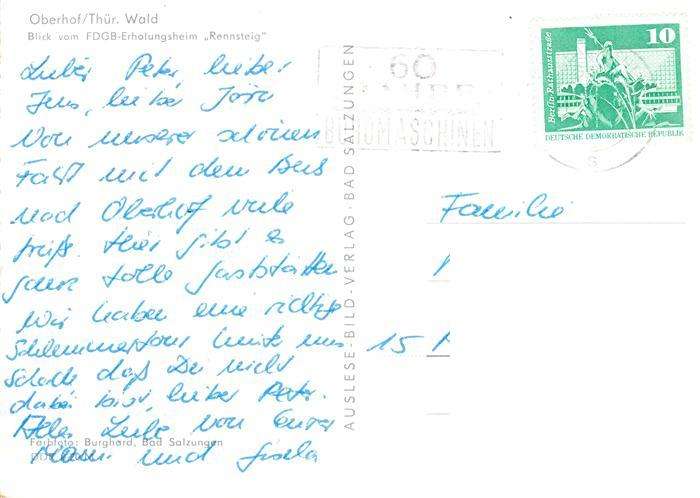 Oberhof/Thür. Wald
Blick vom FDGB-Erholungsheim „Rennsteig"
Lieber Peter, lieber
Jens, lieber Jörg
Von unserer schönen
Fahrt mit dem Bus
nach Oberhof viele
Grüße. Hier gibt es
ganz tolle Gaststätten
Wir haben eine richtige
Schlemmertour hinter uns.
Schade daß Du nicht
dabei bist, lieber Peter.
Alles Liebe von Eurer
und Gisela
Farbfoto: Burghard, Bad Salzungen
AUSLESE-BILD-VERLAG·BAD SALZUNGEN
60
BÜROMASCHINEN
10
Berlin·Rathausstraße
DEUTSCHE DEMOKRATISCHE REPUBLIK
Familie
15